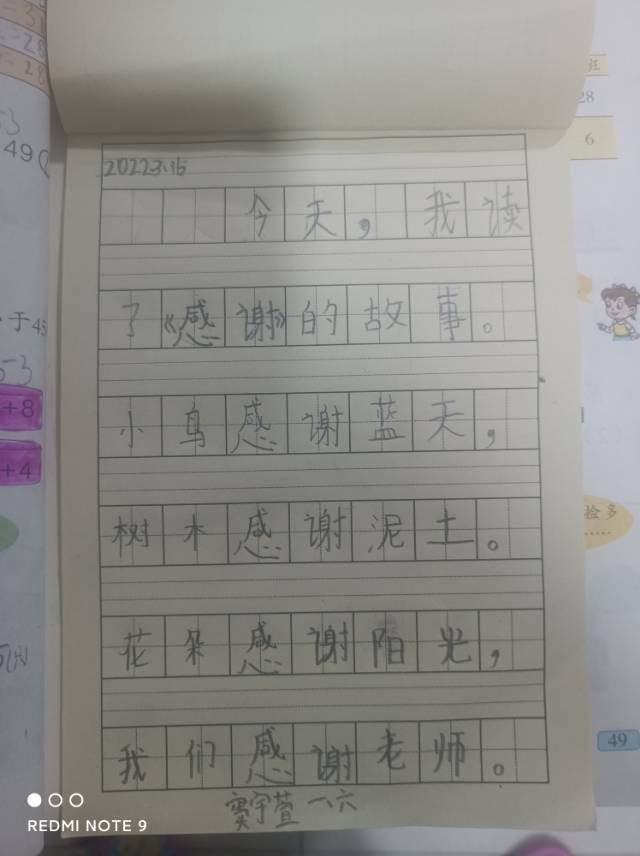 2022.3.15
今天，我读
了《感谢》的故事。
小鸟感谢蓝天，
树木感谢泥土。
花朵感谢阳光，
我们感谢老师。
窦宇萱 一六
49
于45
+8
+4
28
6
检多
……
49
REDMI NOTE 9